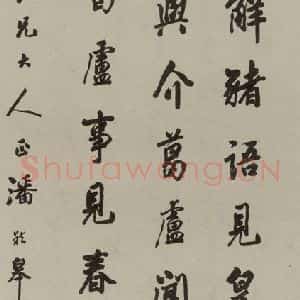 解豬語見
與介葛盧聞
盧事見春
兄大人正潘齡皋
Shufawang.CN